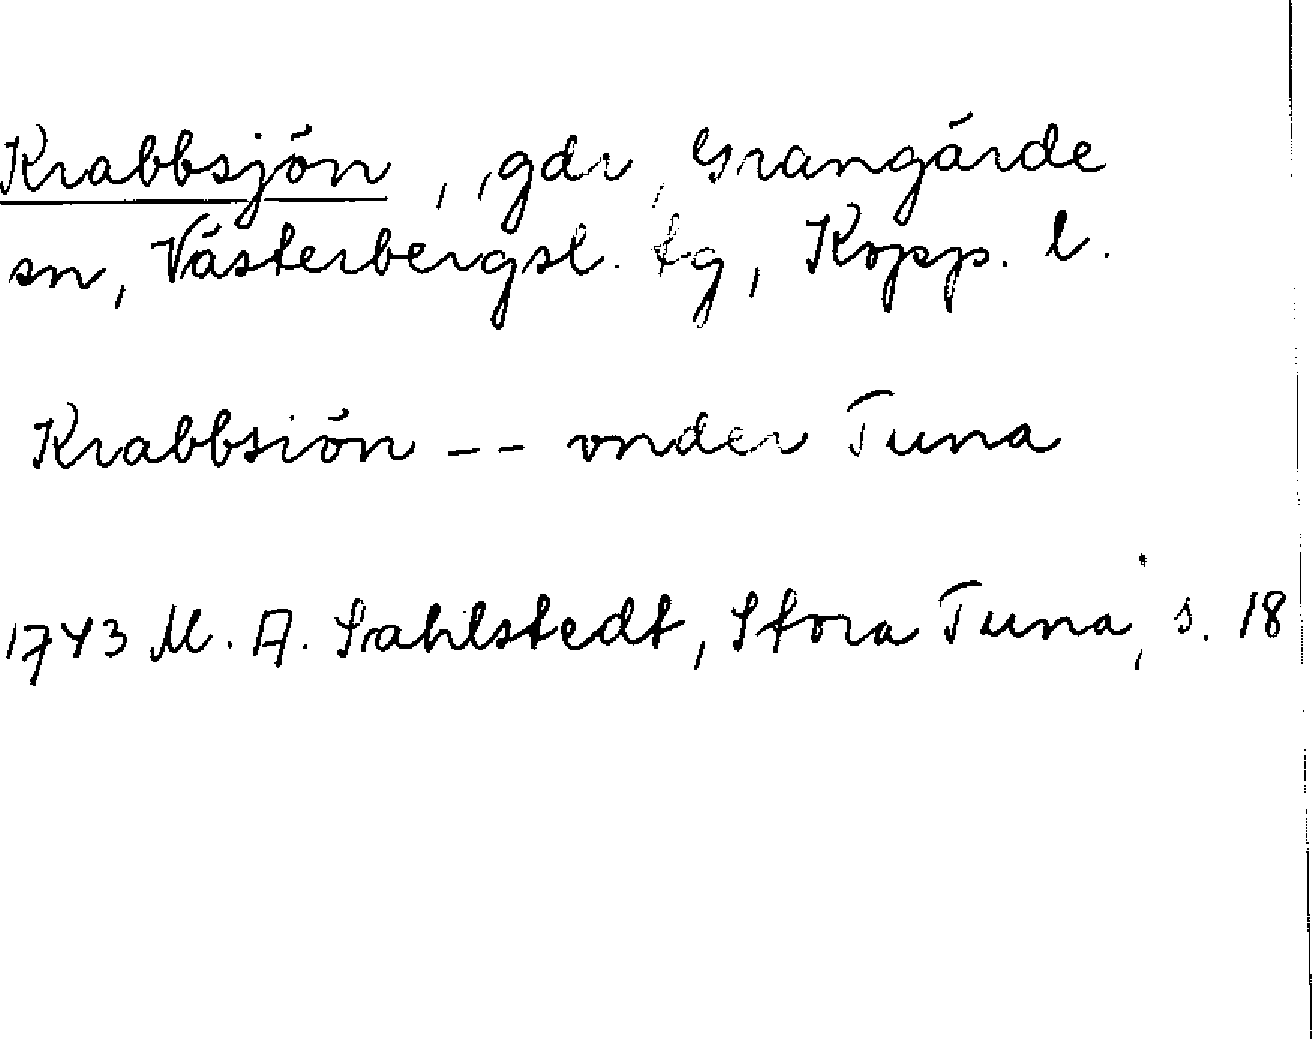 Krabbsjön, , gdr, Grangärde
sn, Västerbergsl. tg, Kopp. l.
Krabbsiön -- vnder Tuna
1743 M. A. Sahlstedt, Stora Tuna, s. 18